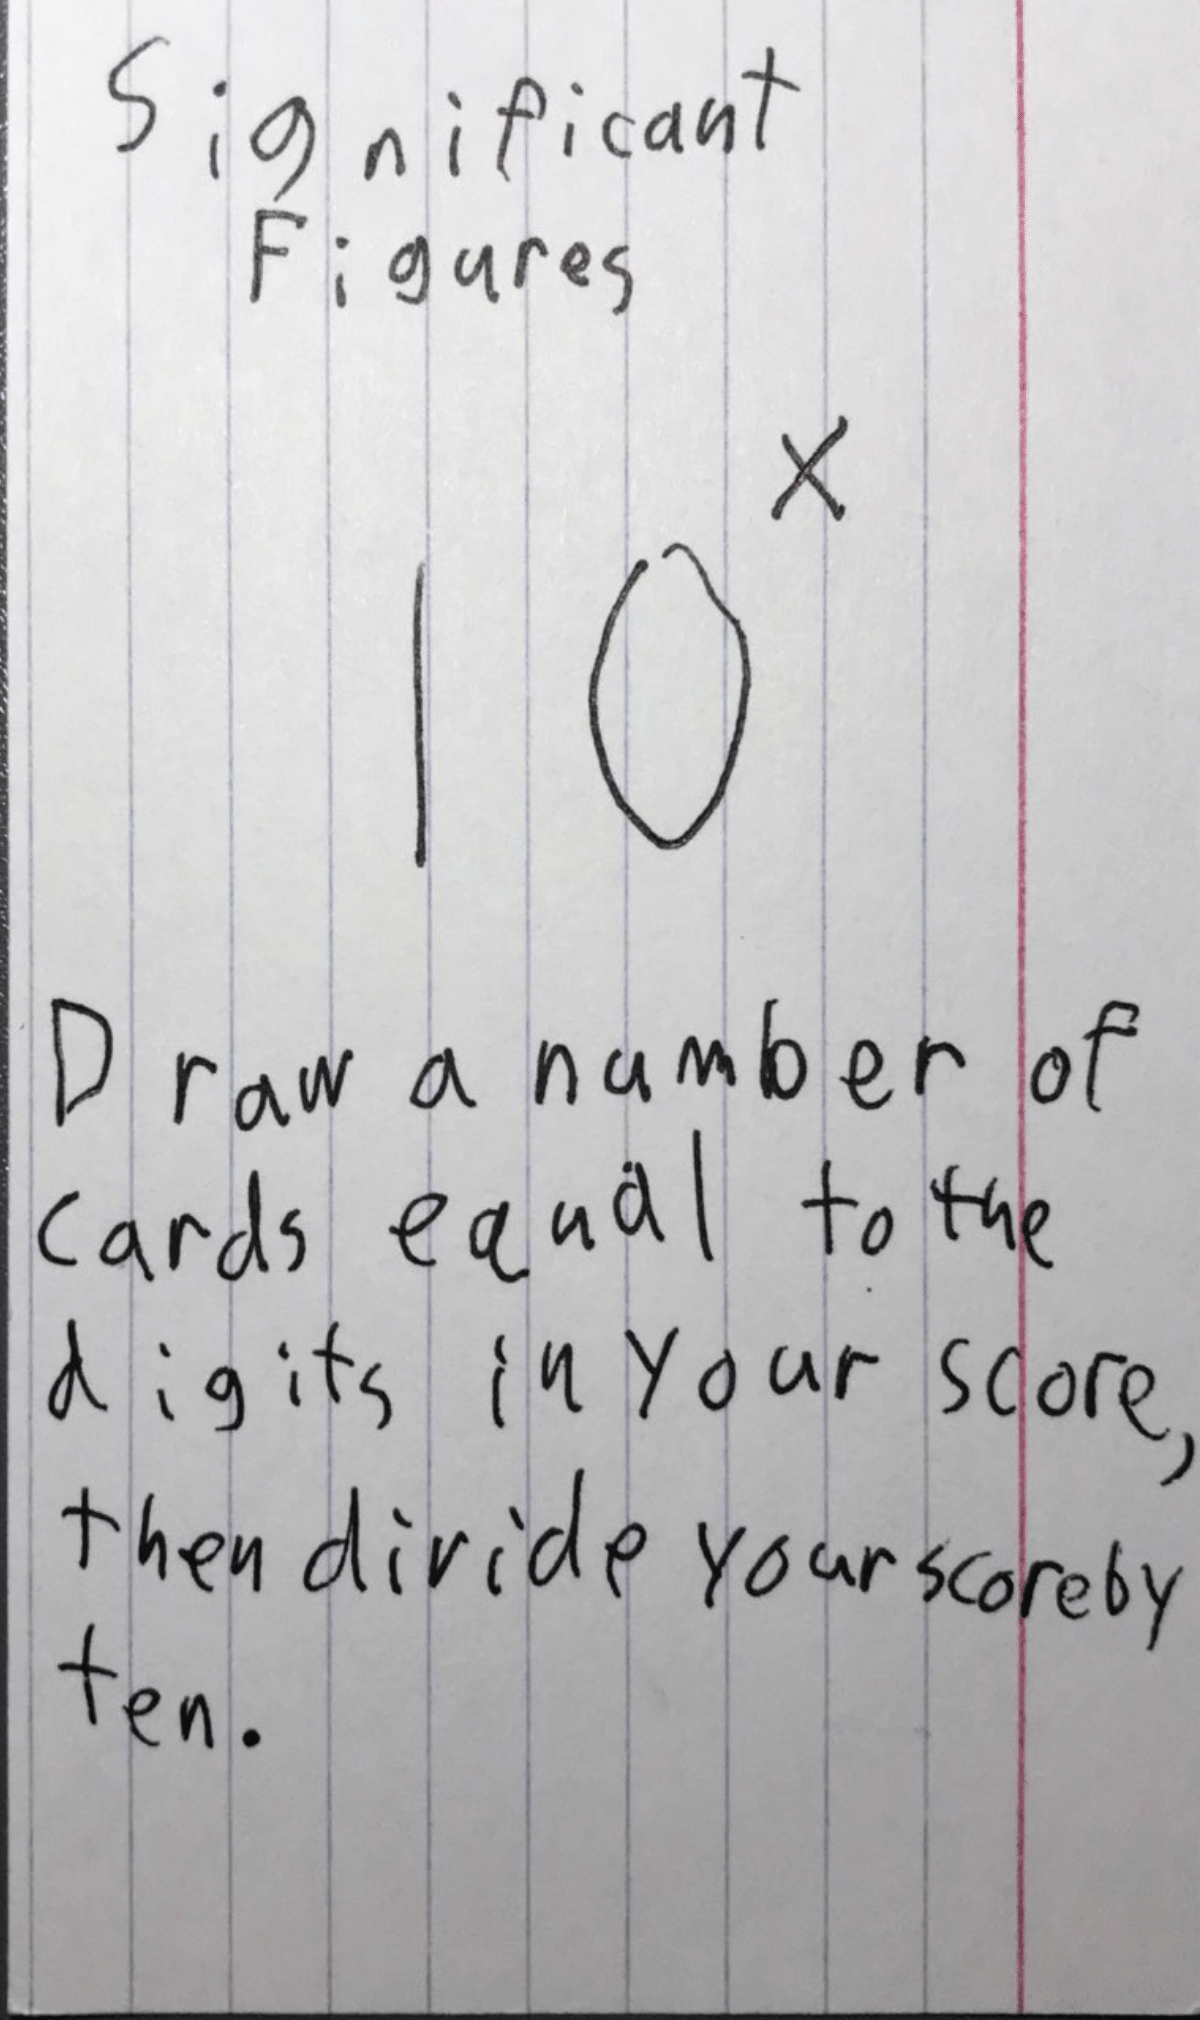 Significant
Figures
10^x
Draw a number of
cards equal to the
digits in your score,
then divide your score by
ten.